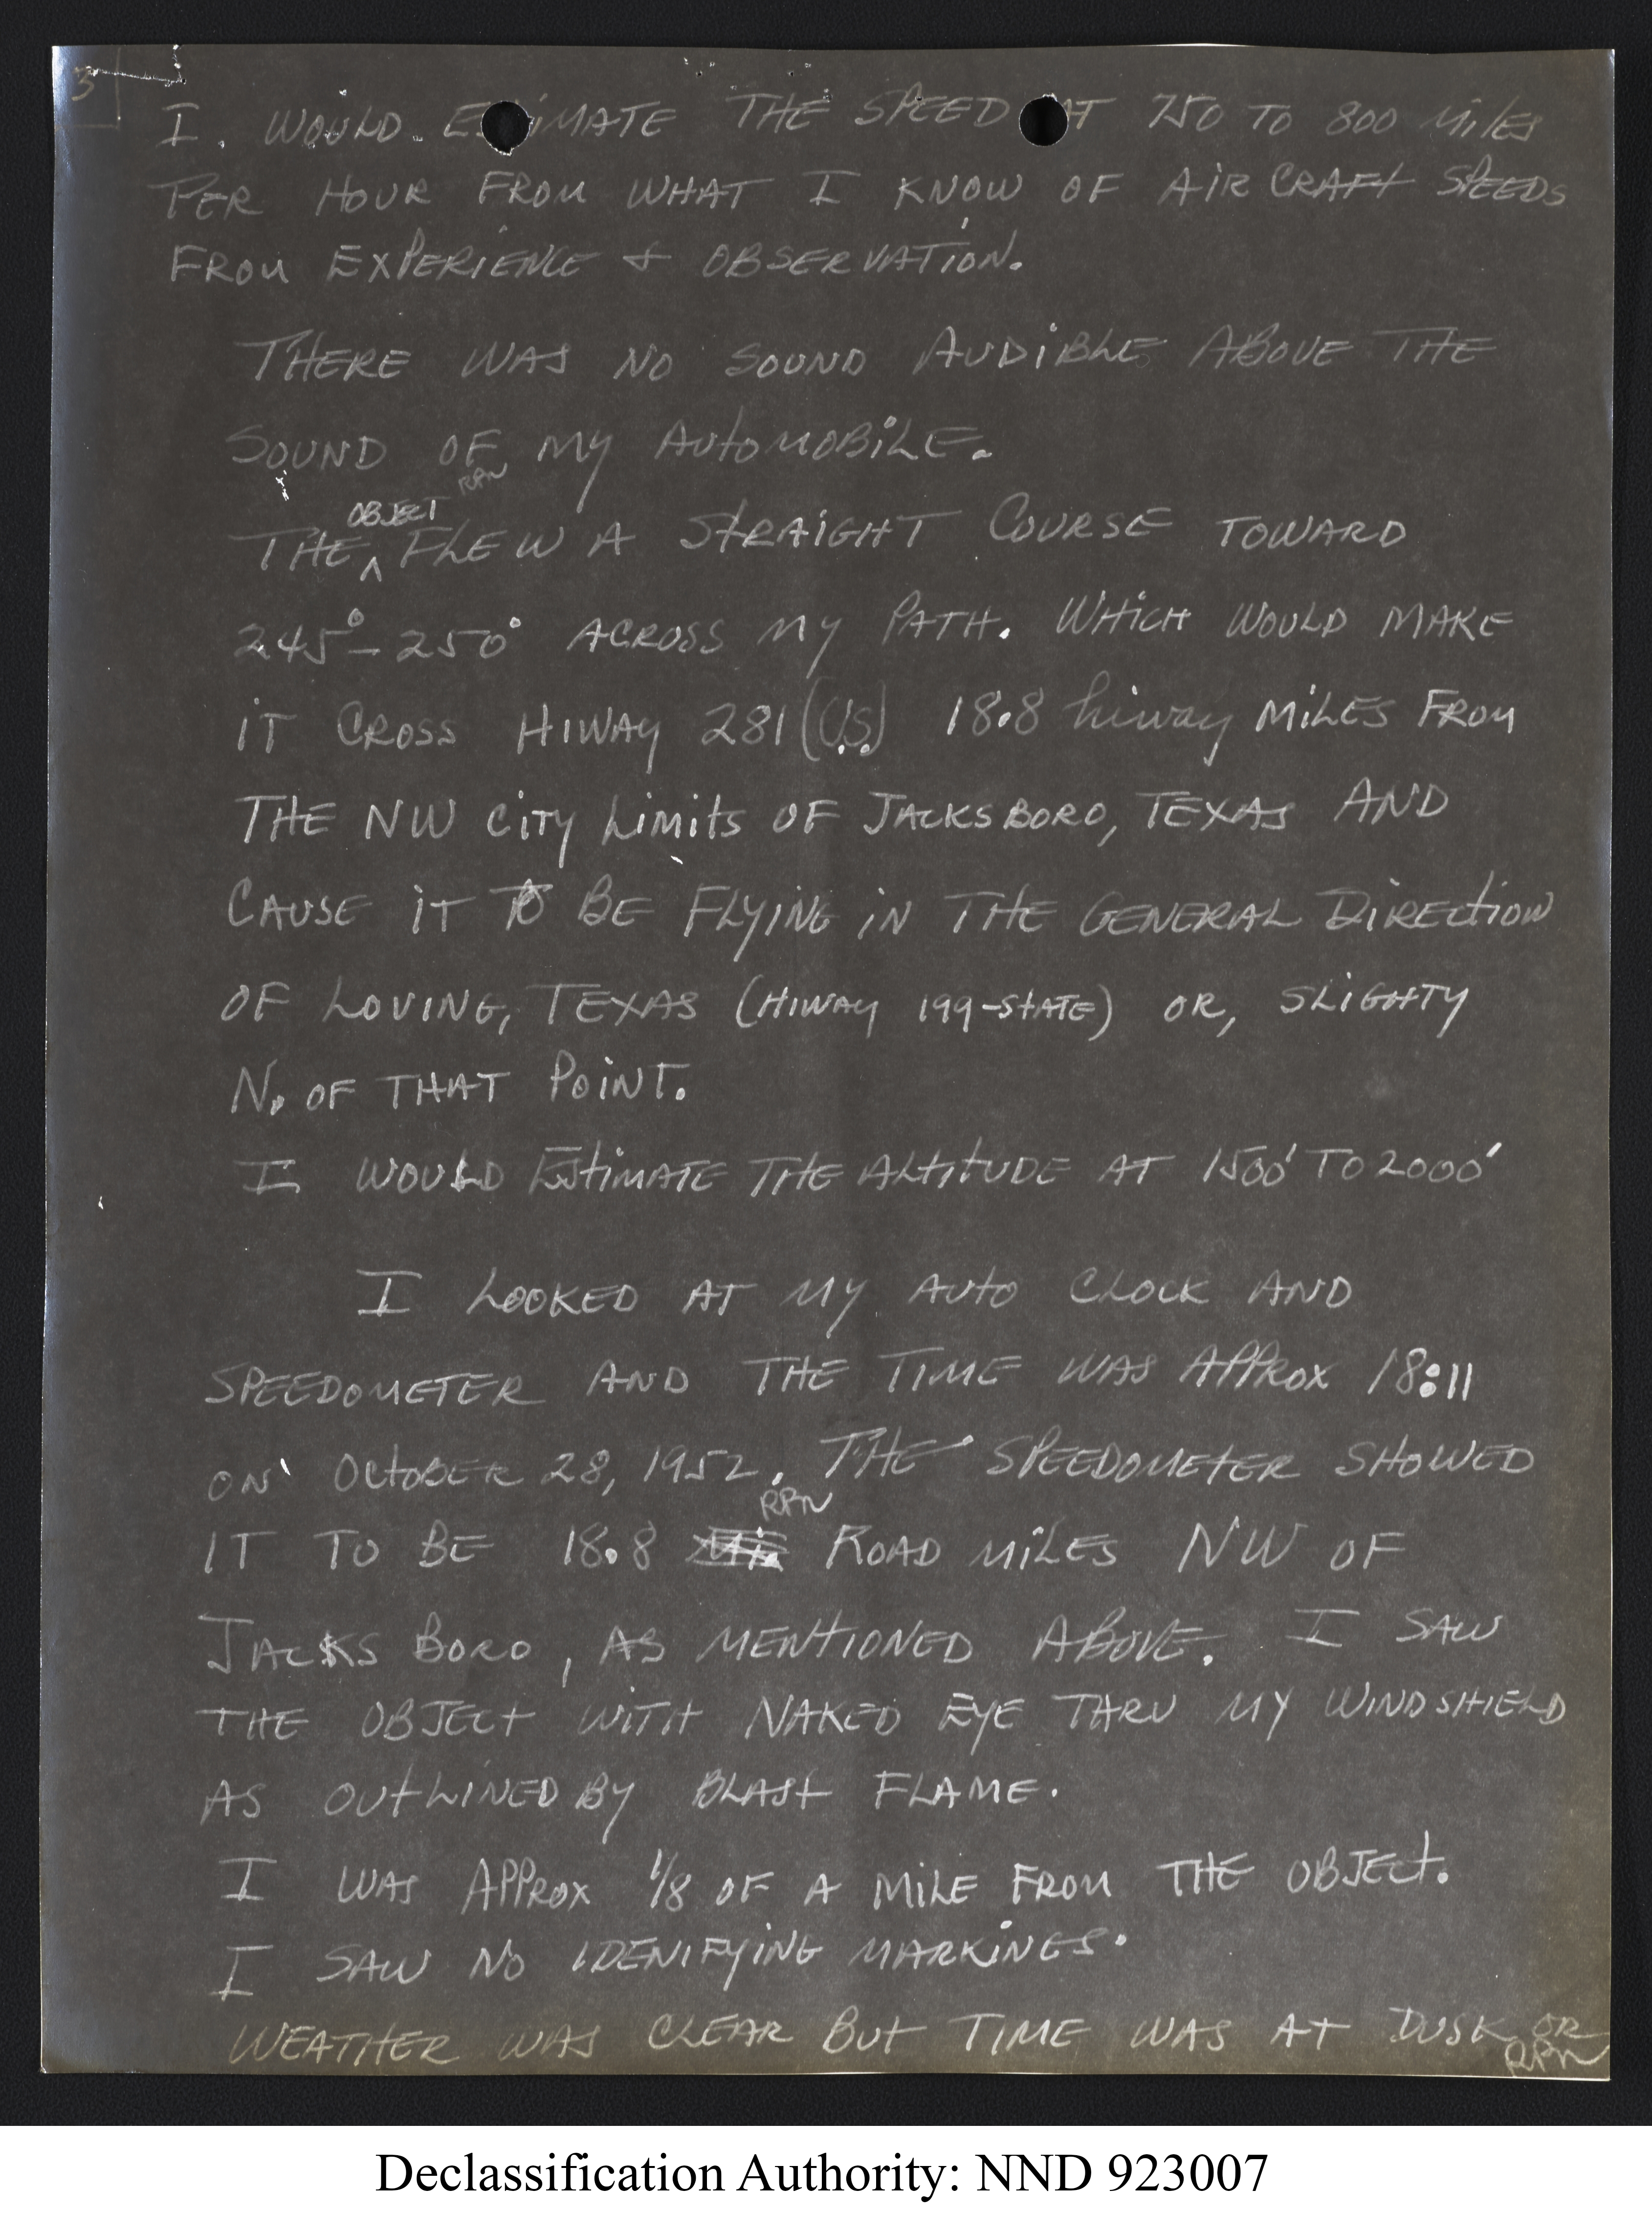 3
I. WOULD ESTIMATE THE SPEED AT 750 TO 800 MilES
PER HOUR FROM WHAT I KNOW OF AIR CRAFt SPEEDS
FROM EXPERIENCE + OBSERVATION.
THERE WAS NO SOUND AUDiBLE ABOVE THE
SOUND OF MY AUtOMOBiLE.
OBJECT RPN
THE ^ FLEW A StRAiGHT COURSE TOWARD
245° - 250° ACROSS MY PATH. WHiCH WOULD MAKE
iT CROSS HIWAY 281 (U.S.) 18.8 hiway MiLES FROM
THE NW CiTY LiMitS OF JACKSBORO, TEXAS AND
CAUSE iT TO BE FLYiNG iN THE GENERAL DiRECtioN
OF LOVING, TEXAS (HIWAY 199-StATE) OR, SLiGHTY
N. OF THAT POiNT.
I WOULD EStiMATE THE ALtitUDE AT 1500' TO 2000'
I LOOKED AT MY AUtO CLOCK AND
SPEEDOMETER AND THE TIME WAS APPROX 18:11
ON OCtOBER 28, 1952. THE SPEEDOMEtER SHOWED
RPN
IT TO BE 18.8 Mi. ROAD MiLES NW OF
JACKS BORO, AS MENtIONED ABOVE. I SAW
THE OBJECt WITH NAKED EYE THRU MY WINDSHIELD
AS OUtLINED BY BLASt FLAME.
I WAS APPROX 1/8 OF A MiLE FROM THE OBJECt.
I SAW NO IDENIFYiNG MARKiNGS.
WEATHER WAS CLEAR BUt TIME WAS At DUSK OR
RPN
Declassification Authority: NND 923007